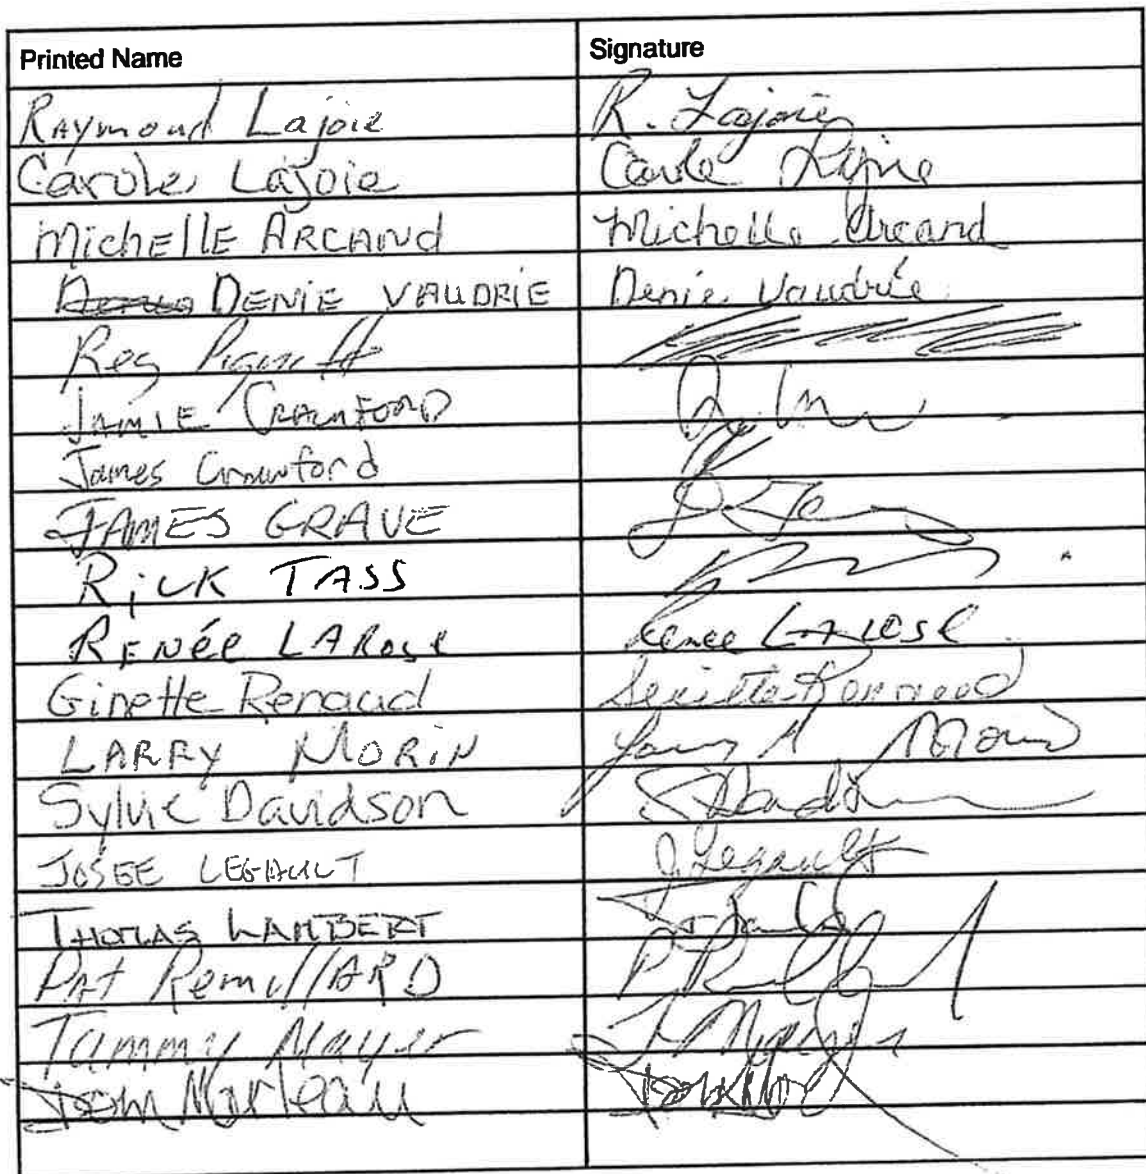 Printed Name Signature
Raymond Lajoie R. Lajoie
Carole Lajoie Carole Lajoie
MichEllE ARCANd Michelle Arcand
DENIE VAUDRIE Denie Vaudrie
Reg
JAMIE CRAWFORD
James Crawford
JAMES GRAVE
RiCK TASS
RENÉe LARose Renee LaRose
Ginette Renaud Ginette Renaud
LARRY MORiN Larry Morin
Sylvie Davidson S Davidson
JOSÉE LEGAULT J Legault
THOMAS LAMBERT
PAT RemillARD P Remillard
Tammy Mayer T Mayer
Dom Marleau